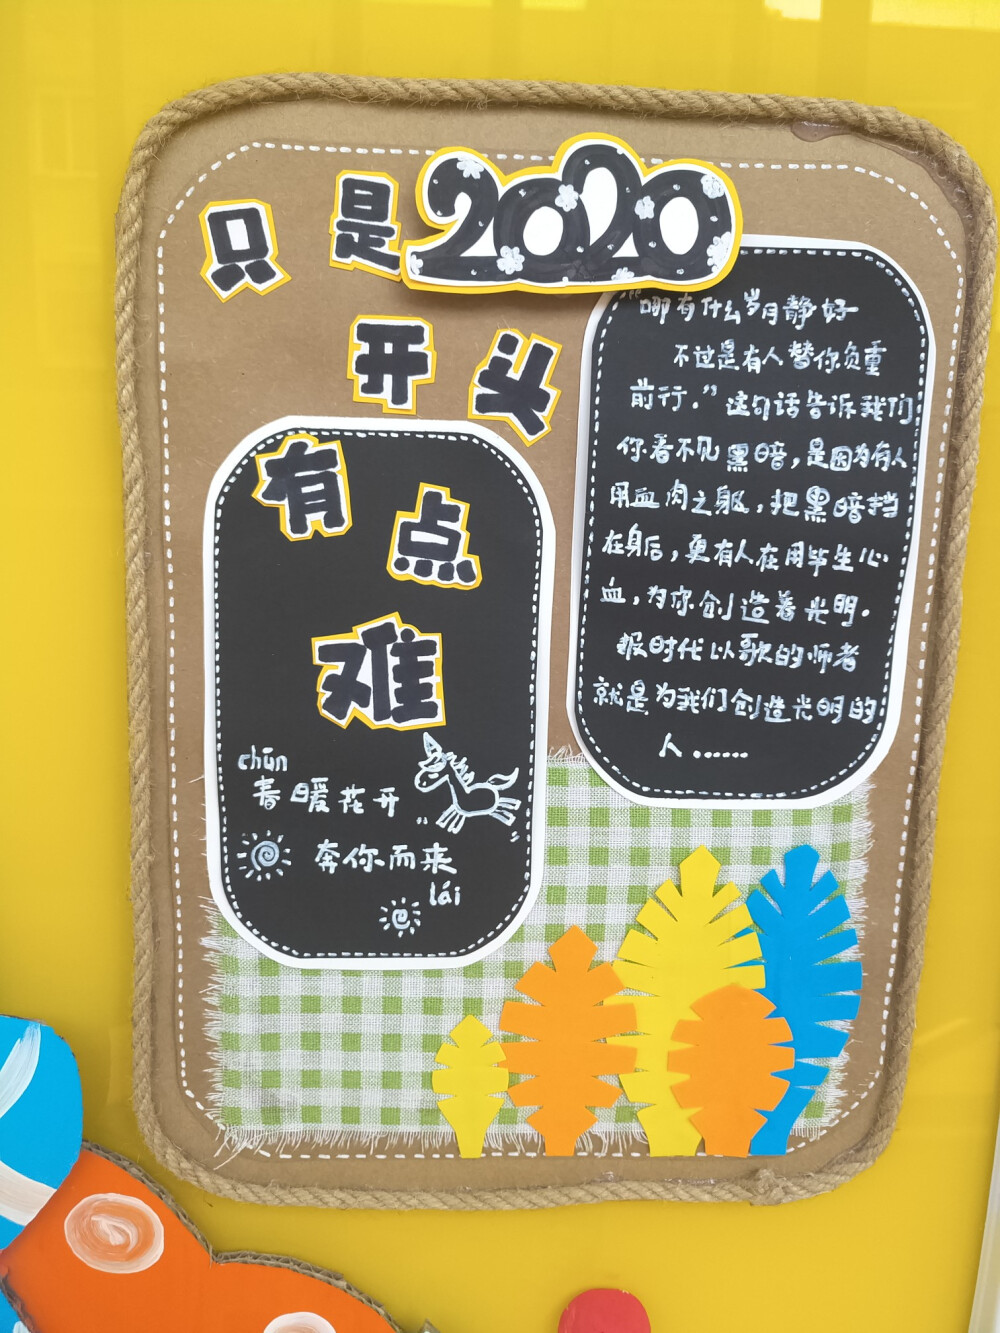 只是2020
开头
有点
难
chūn
春暖花开
奔你而来
lái
“哪有什么岁月静好
不过是有人替你负重
前行.”这句话告诉我们
你看不见黑暗，是因为有人
用血肉之躯，把黑暗挡
在身后，更有人在用毕生心
血，为你创造着光明.
报时代以歌的师者
就是为我们创造光明的
人……